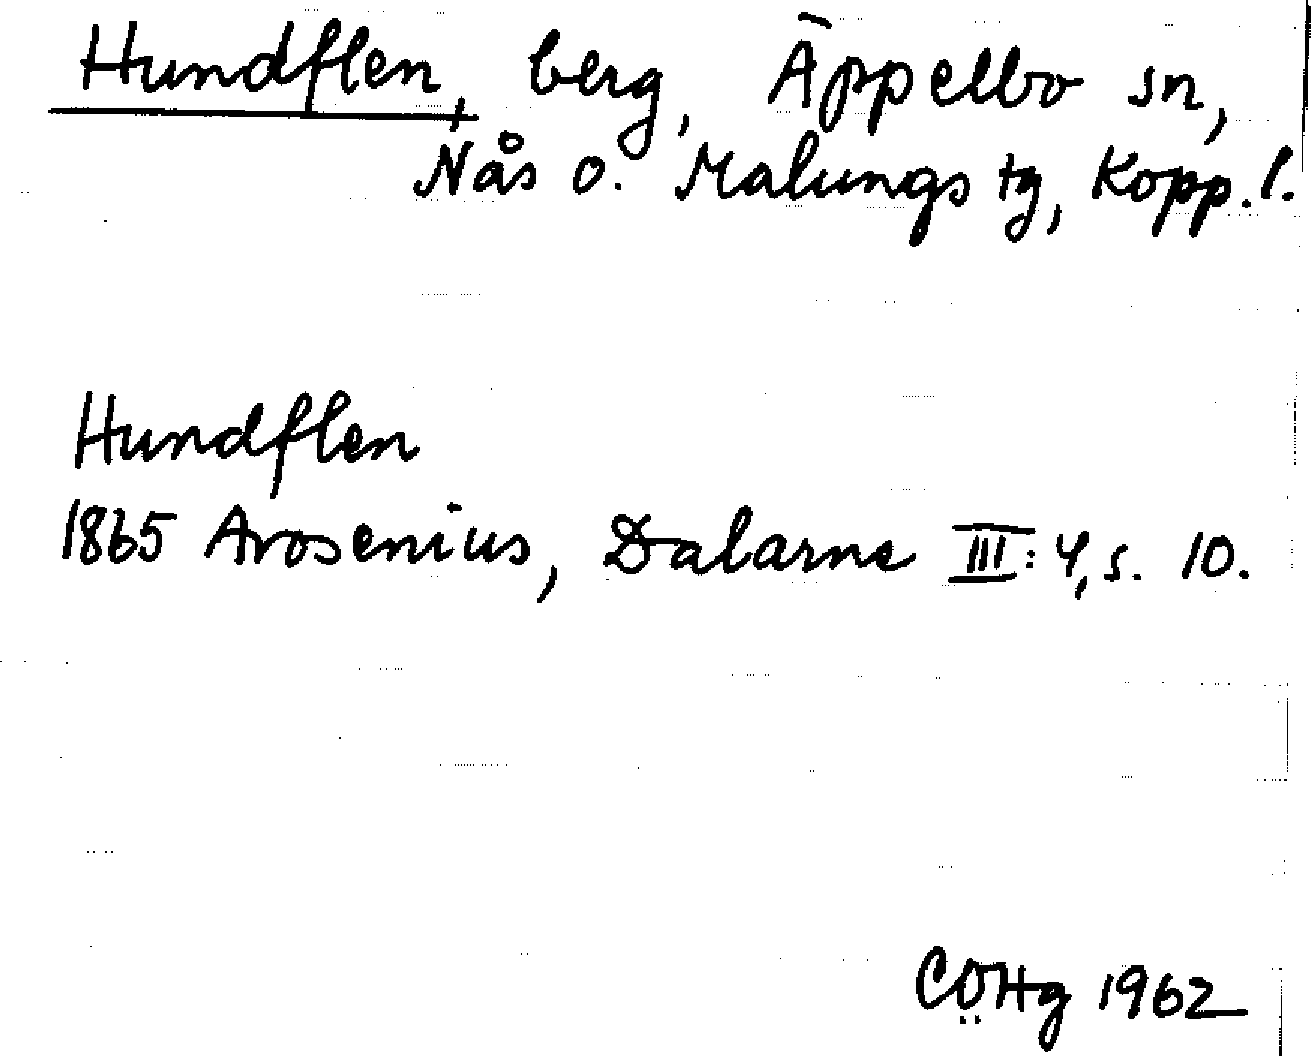 Hundflen, berg, Äppelbo sn,
Nås o. Malungs tg, Kopp. l.
Hundflen
1865 Arosenius, Dalarne III: 4, s. 10.
CÖHg 1962